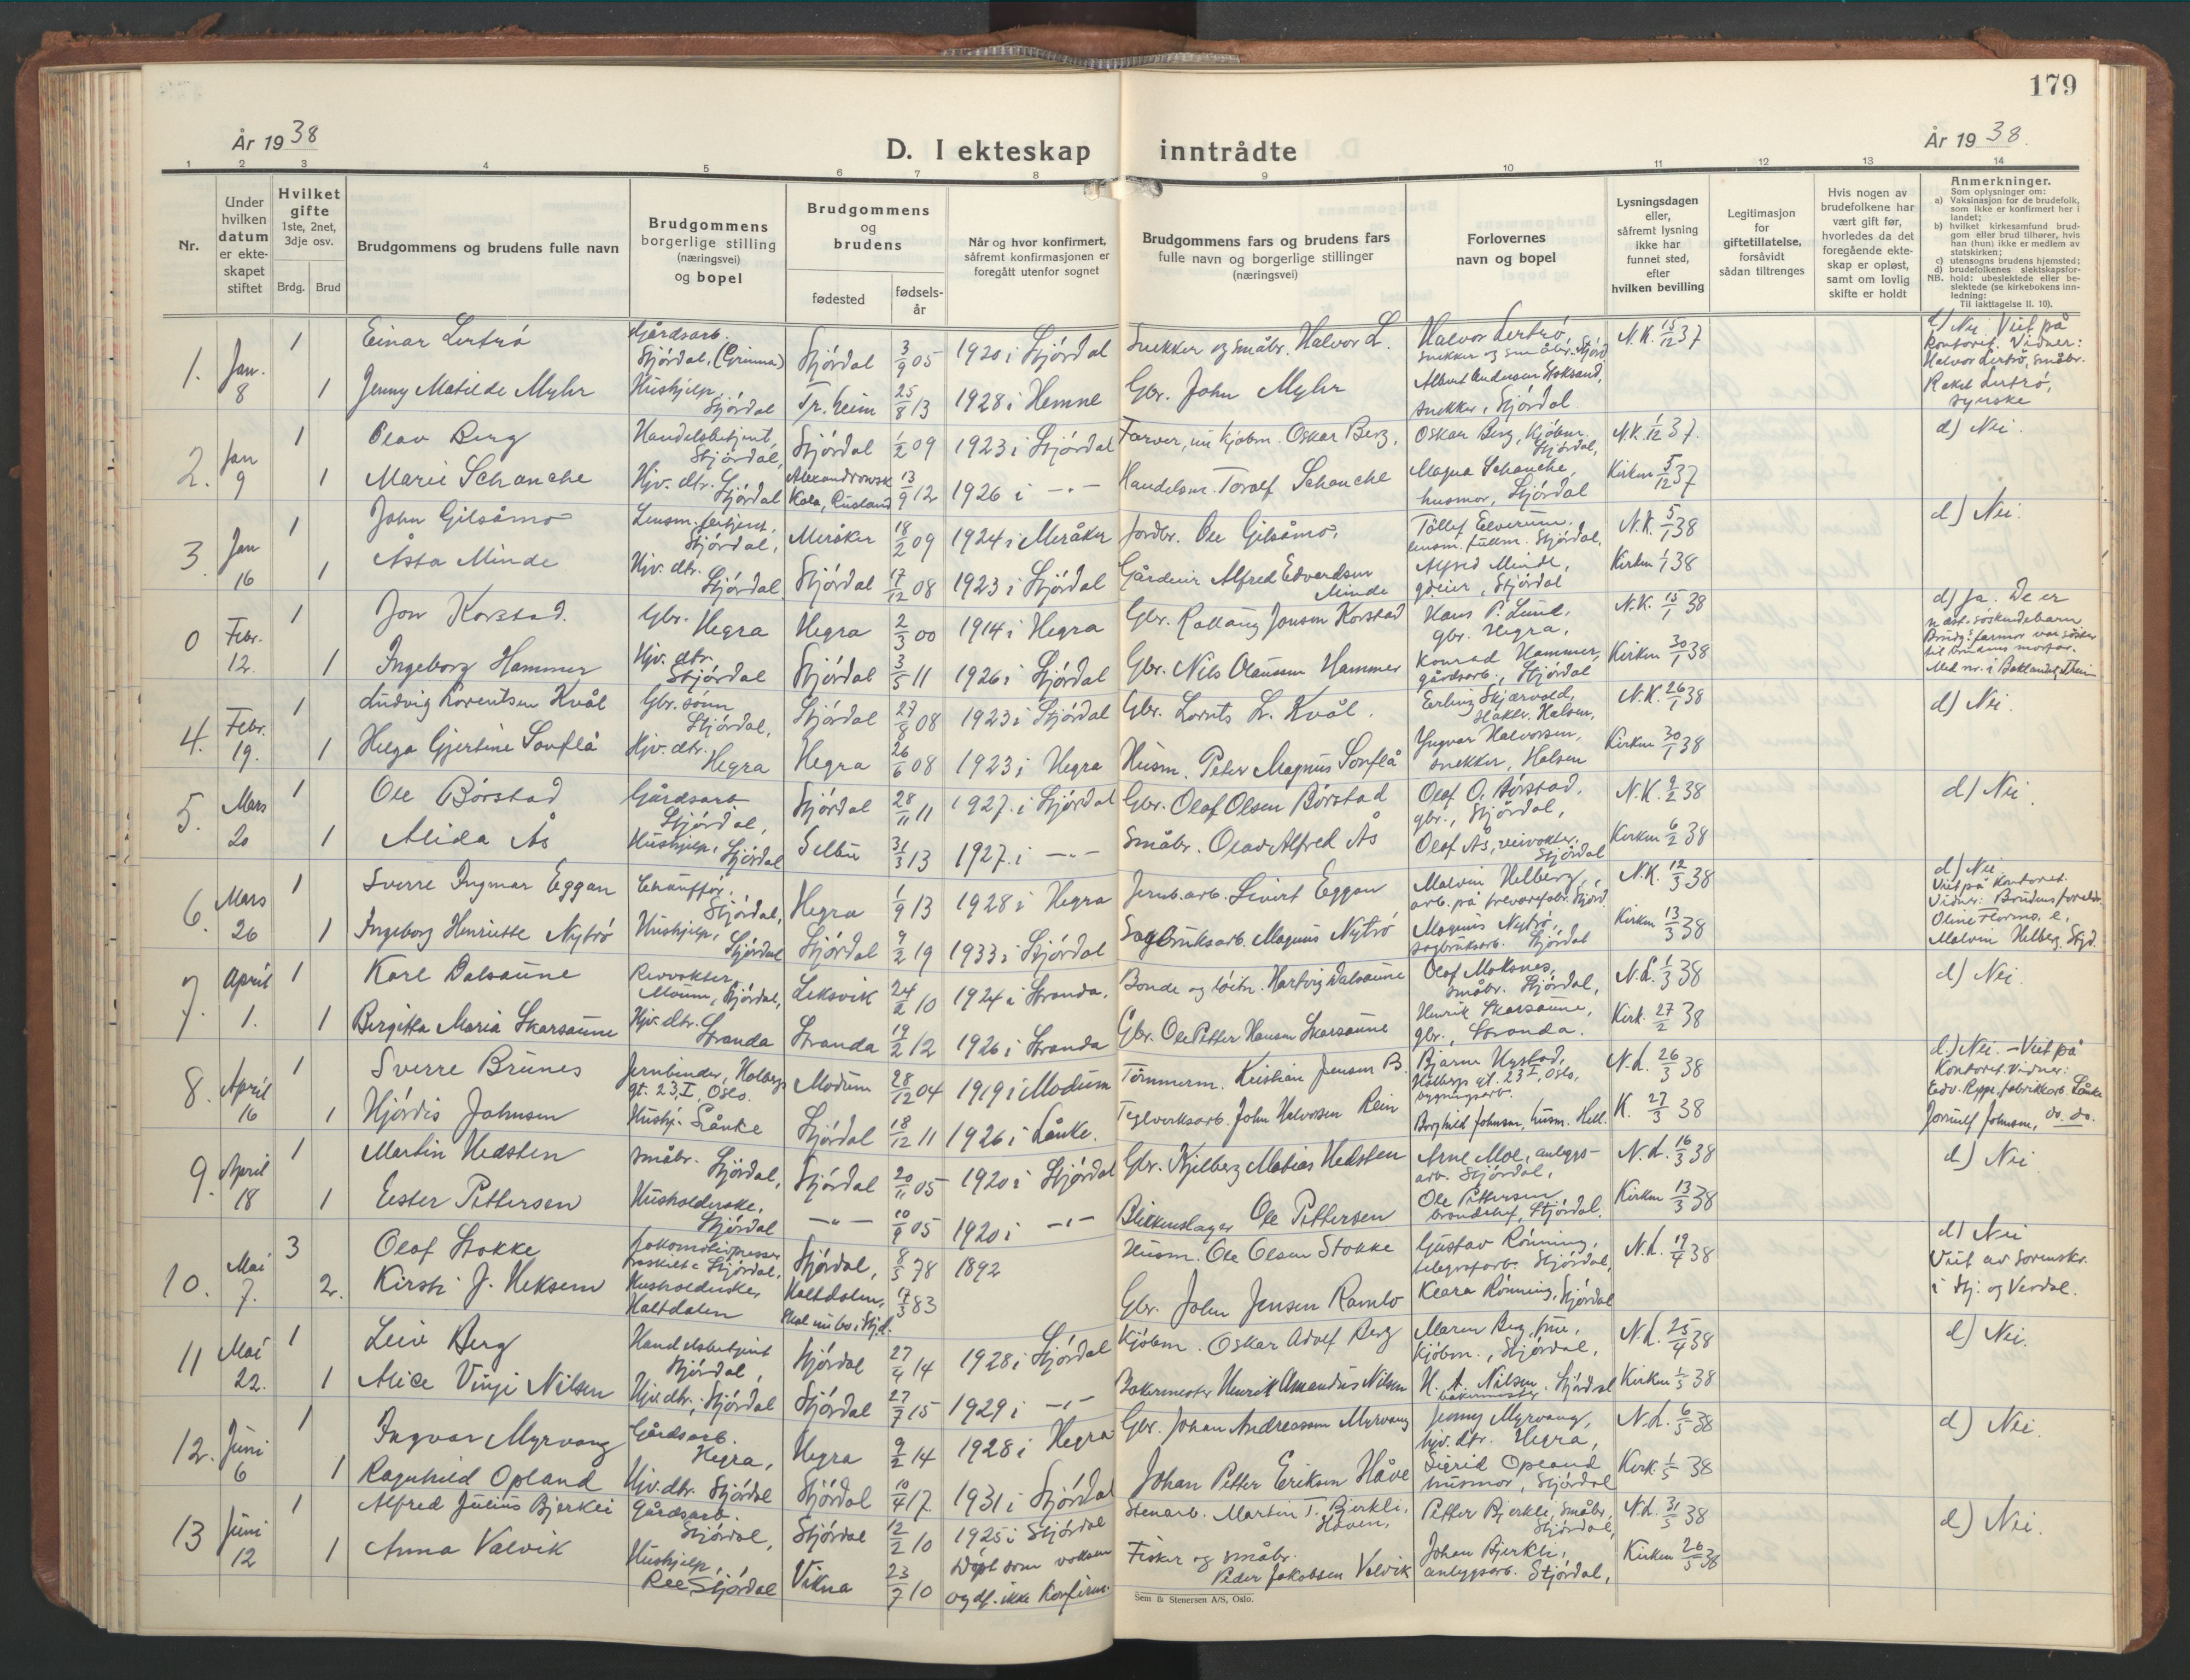 179
År 1938
D. I ekteskap inntrådte
År 1938.
1 2 3 4 5 6 7 8 9 10 11 12 13 14
Nr.
Under hvilken datum er ekteskapet stiftet
Hvilket gifte 1ste, 2net, 3dje osv.
Brdg. Brud
Brudgommens og brudens fulle navn
Brudgommens borgerlige stilling (næringsvei) og bopel
Brudgommens og brudens
fødested
fødselsår
Når og hvor konfirmert, såfremt konfirmasjonen er foregått utenfor sognet
Brudgommens fars og brudens fars fulle navn og borgerlige stillinger (næringsvei)
Forlovernes navn og bopel
Lysningsdagen eller, såfremt lysning ikke har funnet sted, efter hvilken bevilling
Legitimasjon for giftetillatelse, forsåvidt sådan tiltrenges
Hvis nogen av brudefolkene har vært gift før, hvorledes da det foregående ekteskap er opløst, samt om lovlig skifte er holdt
Anmerkninger.
Som oplysninger om:
a) Vaksinasjon for de brudefolk, som ikke er konfirmert her i landet;
b) hvilket kirkesamfund brudgom eller brud tilhører, hvis han (hun) ikke er medlem av statskirken;
c) utensogns brudens hjemsted;
d) brudefolkenes slektskapsforhold: ubeslektede eller beslektede (se kirkebokens innledning:
NB. Til iakttagelse II. 10).
1. Jan. 8 1 Einar Lertrö Gårdsarb. Stjördal, (Grinna) Stjördal 3/9 05 1920 i Stjördal Snekker og småbr. Halvor L. Halvor Lertrö, snekker og småbr. Stjörd. N.K. 15/12 37 d) Nei. Viet på kontoret. Vidner: Halvor Lertrö, småbr. Rakel Lertrö, syerske
1 Jenny Matilde Myhr Hushjelp, Stjördal Tr.heim 25/8 13 1928 i Hemne Gbr. John Myhr Albert Andersen Stoksand, snekker, Stjördal
2. Jan 9 1 Olav Berg Handelsbetjent, Stjördal, Stjördal 1/2 09 1923 i Stjördal Farver, nu kjöbm. Oskar Berg, Oskar Berg, Kjöbm. Stjördal, N.K. 1/12 37. d) Nei.
1 Marie Schanche Hjv. dtr. Stjördal Alexandrowsk Kola, Rusland 13/9 12 1926 i —"— Handelsm. Toralf Schanche Magna Schanche, husmor, Stjördal Kirken 5/12 37
3. Jan 16 1 John Gilsåmo Lensm. betjent, Stjördal, Meråker 18/2 09 1924 i Meråker Jordbr. Ole Gilsåmo, Tollef Elverum, lensm. fullm. Stjördal, N.K. 5/1 38 d) Nei.
1 Åsta Minde Hjv. dtr. Stjördal Stjördal 17/12 08 1923 i Stjördal Gårdeier Alfred Edvardsen Minde Alfred Minde, gdeier, Stjördal Kirken 1/1 38
0 Febr. 12. 1 Jon Korstad. Gbr. Hegra Hegra 2/3 00 1914 i Hegra Gbr. Jonsen Korstad Hans P. Lund, gbr. Hegra, N.K. 15/1 38 d) Ja. De er næst-söskendebarn Brudg.s farmor var söster til brudens morfar. Med nr. i Baklandet, Theim
1 Ingeborg Hammer Hjv. dtr. Stjördal Stjördal 3/5 11 1926 i Stjördal Gbr. Nils Olaussen Hammer Konrad Hammer, gårdsarb., Stjördal Kirken 30/1 38
4. Febr. 19. 1 Ludvig Lorentsen Kvål Gbr. sönn Stjördal, Stjördal 27/8 08 1923 i Stjördal Gbr. Lornts L. Kvål. Erling Skjærvold, slakter. Halsen, N.K. 26/1 38 d) Nei.
1 Helga Gjertine Sonflå Hjv. dtr. Hegra Hegra 26/6 08 1923 i Hegra Husm. Peter Magnus Sonflå Yngvar Halvorsen, snekker, Halsen Kirken 30/1 38
5. Mars 20 1 Ole Börstad Gårdsarb. Stjördal, Stjördal 28/11 11 1927. i Stjördal Gbr. Olaf Olsen Börstad Olaf O. Börstad, gbr., Stjördal, N.K. 2/2 38 d) Nei.
1 Alida Ås Hushjelp, Stjördal Selbu 31/3 13 1927. i —"— Småbr. Olav Alfred Ås Olaf Ås, veivokter. Stjördal Kirken 6/2 38
6. Mars 26 1 Sverre Ingmar Eggan Chauffør. Stjördal, Hegra 1/9 13 1928 i Hegra Jernb.arb. Sivert Eggan Malvin Helberg, arb. på trevarefabr. Stjörd. N.K. 12/3 38 d) Nei. Viet på kontoret. Vidner: Brudens foreldre. Oline Flormo, e. Malvin Helberg. Stjd.
1 Ingeborg Henriette Nytrö Hushjelp, Stjördal Stjördal 9/2 19 1933 i Stjördal Sagbruksarb. Magnus Nytrö Magnus Nytrö, sagbruksarb. Stjördal Kirken 13/3 38
7. April 1. 1 Karl Dalsaune Revvokter, Moum, Stjördal, Leksvik 24/2 10 1924 i Stranda. Bonde og löitn. Hartvig Dalsaune Olaf Moksnes, småbr. Stjördal, N.L. 1/3 38 d) Nei.
1 Bergitta Maria Skarsaune Hjv. dtr. Stranda Stranda 19/2 12 1926 i Stranda Gbr. Ole Petter Hansen Skarsaune Henrik Skarsaune, gbr., Stranda. Kirk. 27/2 38
8. April 16 1 Sverre Brunes Jernbinder, Holbergs gt. 23, I, Oslo. Modum 28/12 04 1919 i Modum Tömmerm. Kristian Jensen B. Bjarne Nystad, Holbergs gt. 23 I, Oslo, bygningsarb. N.L. 26/3 38 d) Nei. - Viet på Kontoret. Vidner: Edv. Rype, fabrikkarb. Lånke Jörnulf Johnsen, do. do.
1 Hjördis Johnsen Hushj. Lånke Stjördal 18/12 11 1926 i Lånke. Teglverksarb. John Halvorsen Rein Borghild Johnsen, husm. Hell. K. 27/3 38
9. April 18 1 Martin Hedsten Småbr. Stjördal, Stjördal 20/11 05 1920 i Stjördal Gbr. Kjelberg Matias Hedsten Arne Moe, anleggs- arb. Stjördal, N.L. 16/3 38 d) Nei
1 Ester Pettersen Husholderske, Stjördal —"— 10/9 05 1920 i —"— Blikkenslager Ole Pettersen Ole Pettersen brandchef, Stjördal. Kirken 13/3 38
10. Mai 7. 3 Olaf Stokke Lokomotivpusser Stjördal, Stjördal, 8/5 78 1892 Husm. Ole Olsen Stokke Gustav Rönning, telegrafarb. Stjördal, N.L. 19/4 38 d) Nei Viet av sorenskr. i Stj. og Verdal.
2. Kirsti J. Heksem Husholderske Haltdalen Haltdalen, Skal nu bo i Stjd. 17/3 83 Gbr. John Jensen Ramlo Klara Rönning, Stjördal
11 Mai 22. 1 Leiv Berg Handelsbetjent Stjördal, Stjördal 27/4 14 1928 i Stjördal Kjöbm. Oskar Adolf Berg Maren Berg, frue, Kjöbm., Stjördal, N.L. 25/4 38 d) Nei.
1 Alice Vinji Nilsen Hjv. dtr., Stjördal Stjördal 27/7 15 1929 i —"— Bakermester Henrik Amandus Nilsen H. A. Nilsen, bakermester. Stjördal Kirken 1/5 38
12. Juni 6 1 Ingvar Myrvang Gårdsarb. Hegra, Hegra 9/2 14 1928 i Hegra Gbr. Johan Andreassen Myrvang Jenny Myrvang, hjv. dtr. Hegra, N.L. 6/5 38 d) Nei.
1 Ragnhild Opland Hjv. dtr. Stjördal Stjördal 10/4 17 1931 i Stjördal Johan Petter Eriksen Håve Sigrid Opland husmor, Stjördal Kirk. 1/5 38
13 Juni 12 1 Alfred Julius Bjerkli Gårdsarb. Stjördal, Stjördal 12/2 10 1925 i Stjördal Stenarb. Martin T. Bjerkli, Håven, Petter Bjerkli, småbr, Stjördal, N.L. 31/5 38 d) Nei.
1 Anna Valvik Hushjelp, Ree, Stjördal Vikna 23/7 10 Döpt som voksen og df. ikke konfirm. Fisker og småbr. Peder Jakobsen Valvik Johan Bjerkli, anleggsarb. Stjördal, Kirken 26/5 38
Sem & Stenersen A/S, Oslo.